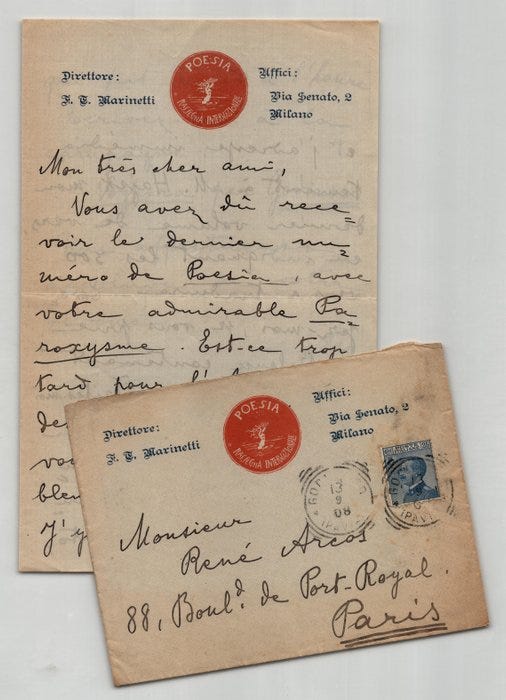 Direttore:
F. T. Marinetti
POESIA
RASSEGNA INTERNAZIONALE
Uffici:
Via Senato, 2
Milano
Mon très cher ami,
Vous avez dû rece=
voir le dernier nu=
méro de Poesia, avec
votre admirable Pa=
roxysme. Est-ce trop
tard pour
de
vo
blem
J'y
Direttore:
F. T. Marinetti
POESIA
RASSEGNA INTERNAZIONALE
Uffici:
Via Senato, 2
Milano
08
(PAVIA)
Monsieur
René Arcos
88, Boul.d de Port-Royal.
Paris